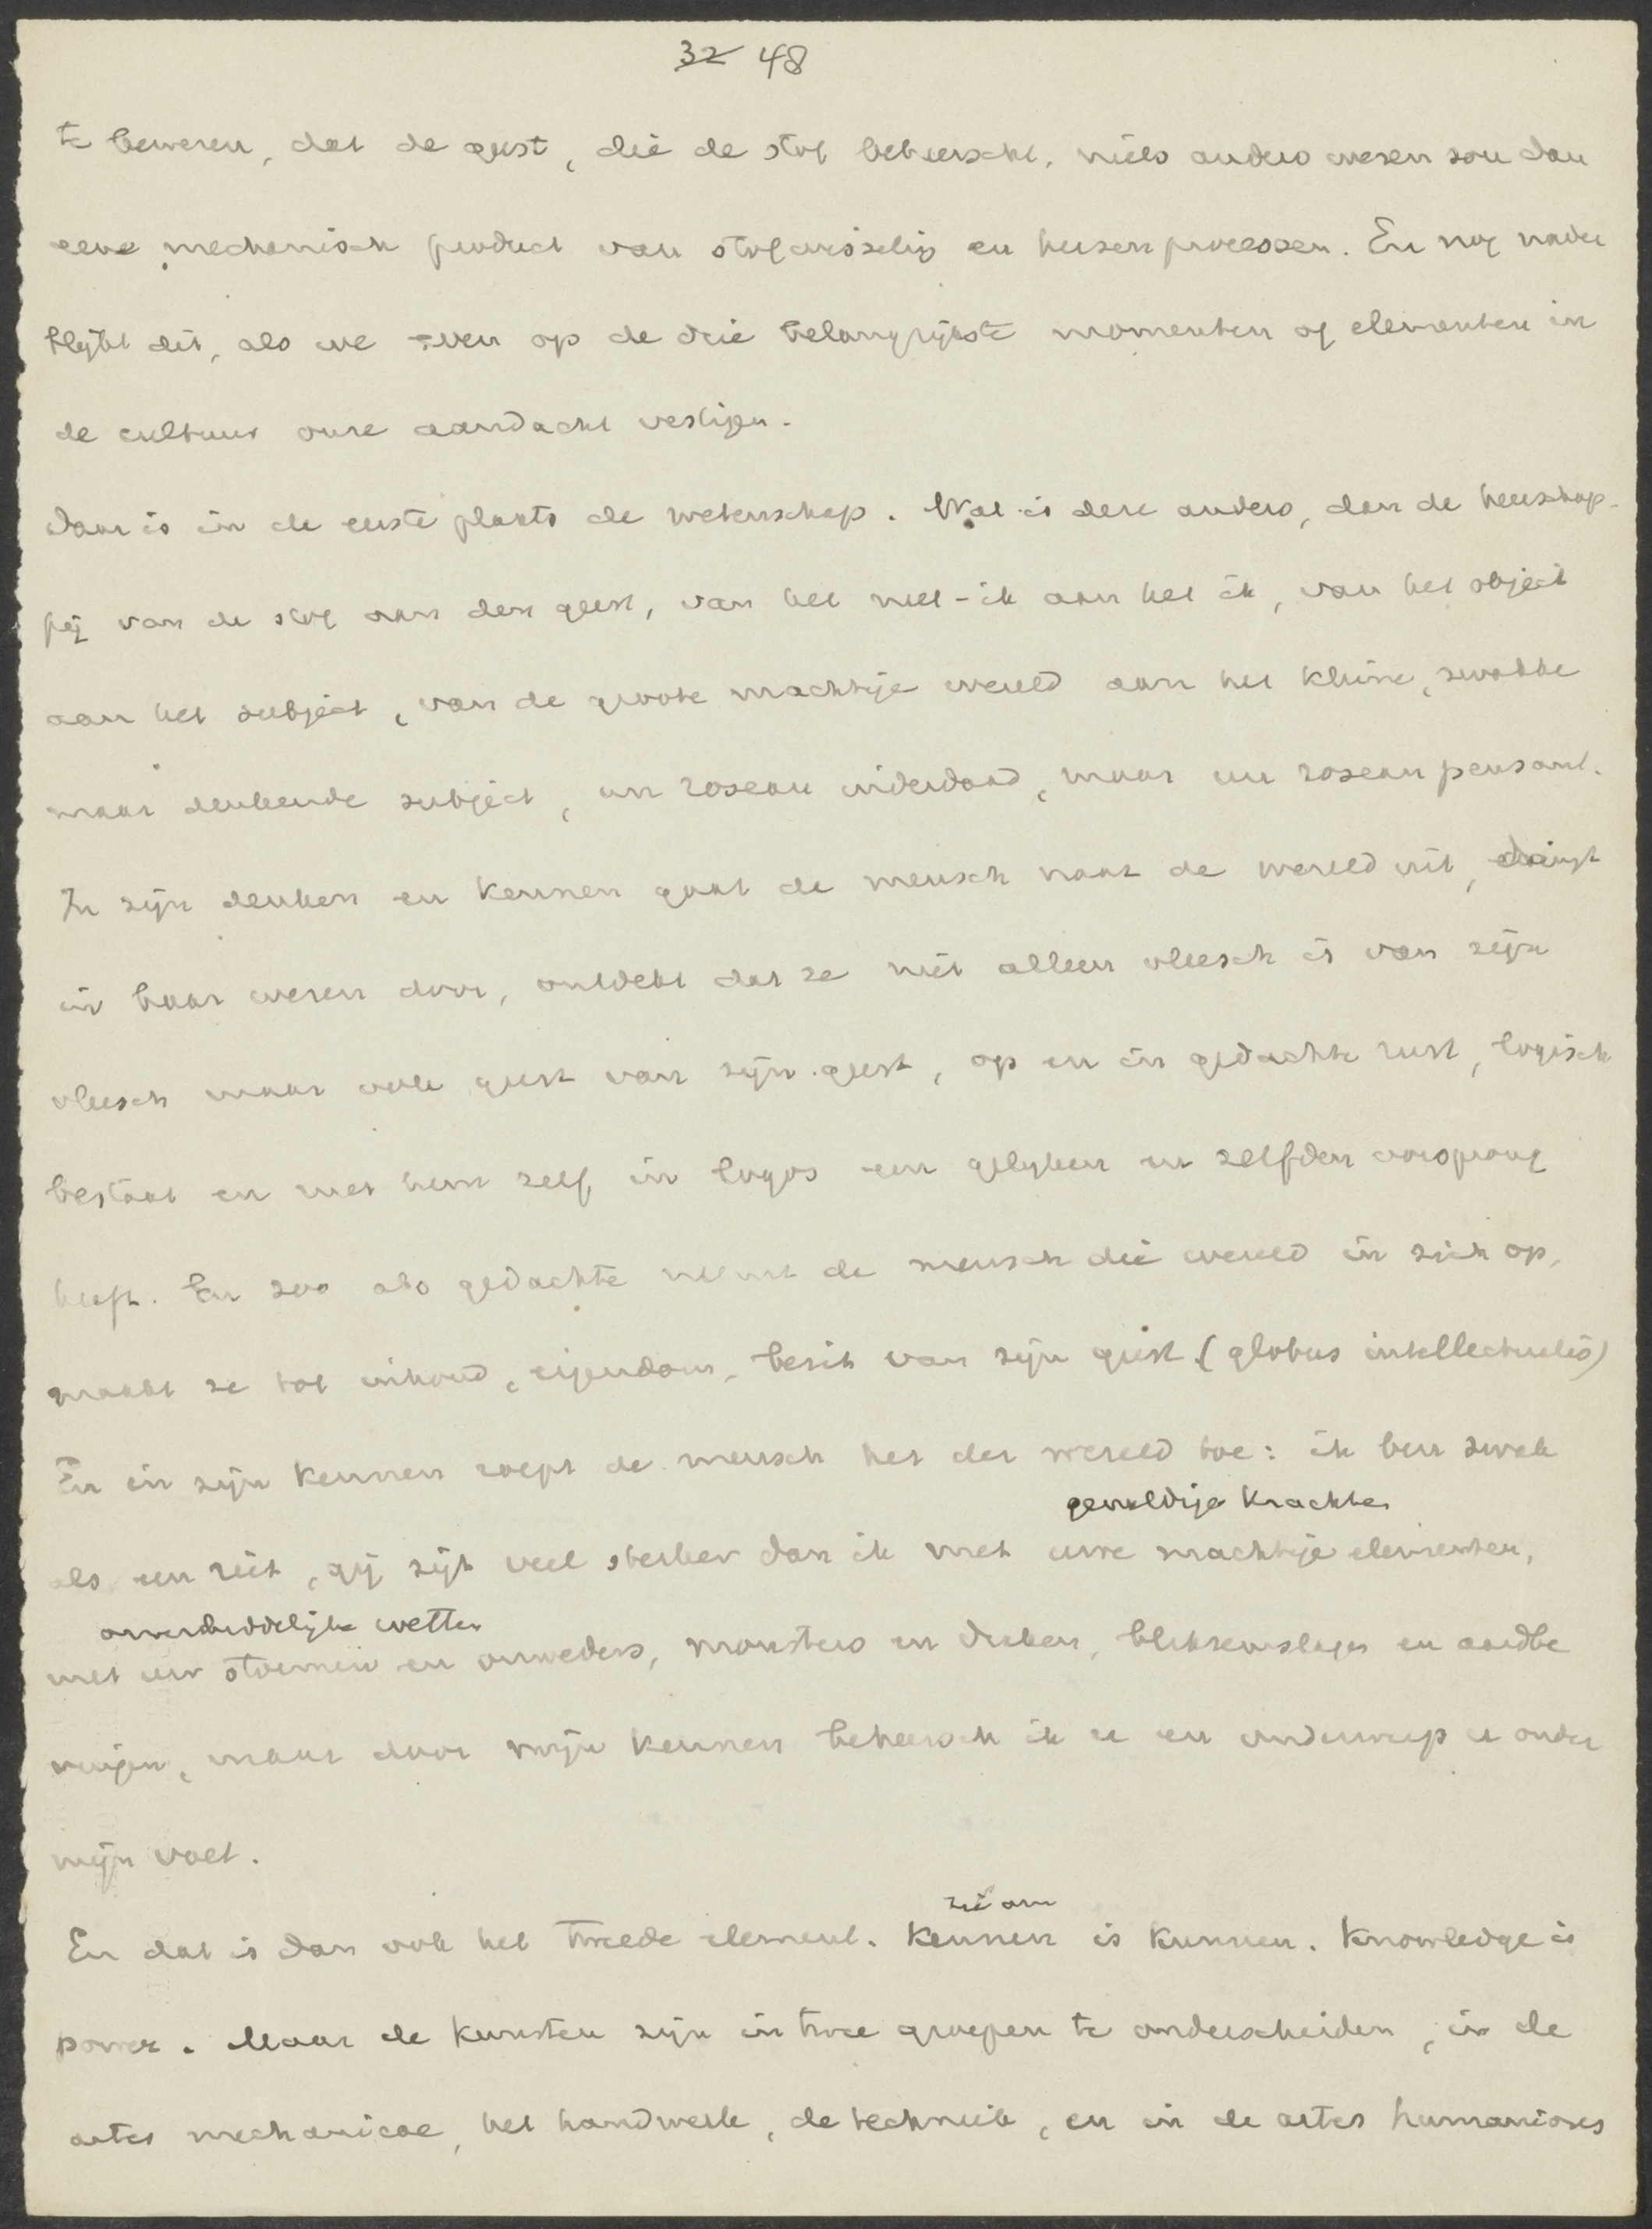 32 48
te beweren, dat de geest, die de stof beheerscht, niets anders wezen zou dan
eene mechanisch product van stofwisseling en hersenprocessen. En nog nader
blijkt dit, als we even op de drie belangrijkste momenten of elementen in
de cultuur onze aandacht vestigen.
Daar is in de eerste plaats de wetenschap. Wat is deze anders, dan de heerschap-
pij van de stof aan den geest, van het niet-ik aan het ik, van het object
aan het subject, van de groote machtige wereld aan het kleine, zwakke
maar denkende subject, un roseau inderdaad, maar un roseau pensant.
In zijn denken en kennen gaat de mensch naar de wereld uit, dringt
in haar wezen door, ontdekt dat ze niet alleen vleesch is van zijn
vleesch maar ook geest van zijn geest, op en in gedachte rust, logisch
bestaat en met hem zelf in logos een gelijken en zelfden oorsprong
heeft. En zoo als gedachte neemt de mensch die wereld in zich op,
maakt ze tot inhoud, eigendom, bezit van zijn geest (globus intellectualis)
En in zijn kennen roept de mensch het der wereld toe: ik ben zwak
geweldige krachten
als een riet, gij zijt veel sterker dan ik met uwe machtige elementen,
onverbiddelijke wetten
met uw stormen en onweders, monsters en draken, bliksemslagen en aardbe
vingen, maar door mijn kennen beheersch ik u en onderwerp u onder
mijn voet.
zie om
En dat is dan ook het tweede element. Kennen is kunnen. Knowledge is
power. Maar de kunsten zijn in twee groepen te onderscheiden, in de
artes mechanicae, het handwerk, de techniek, en in de artes humaniores